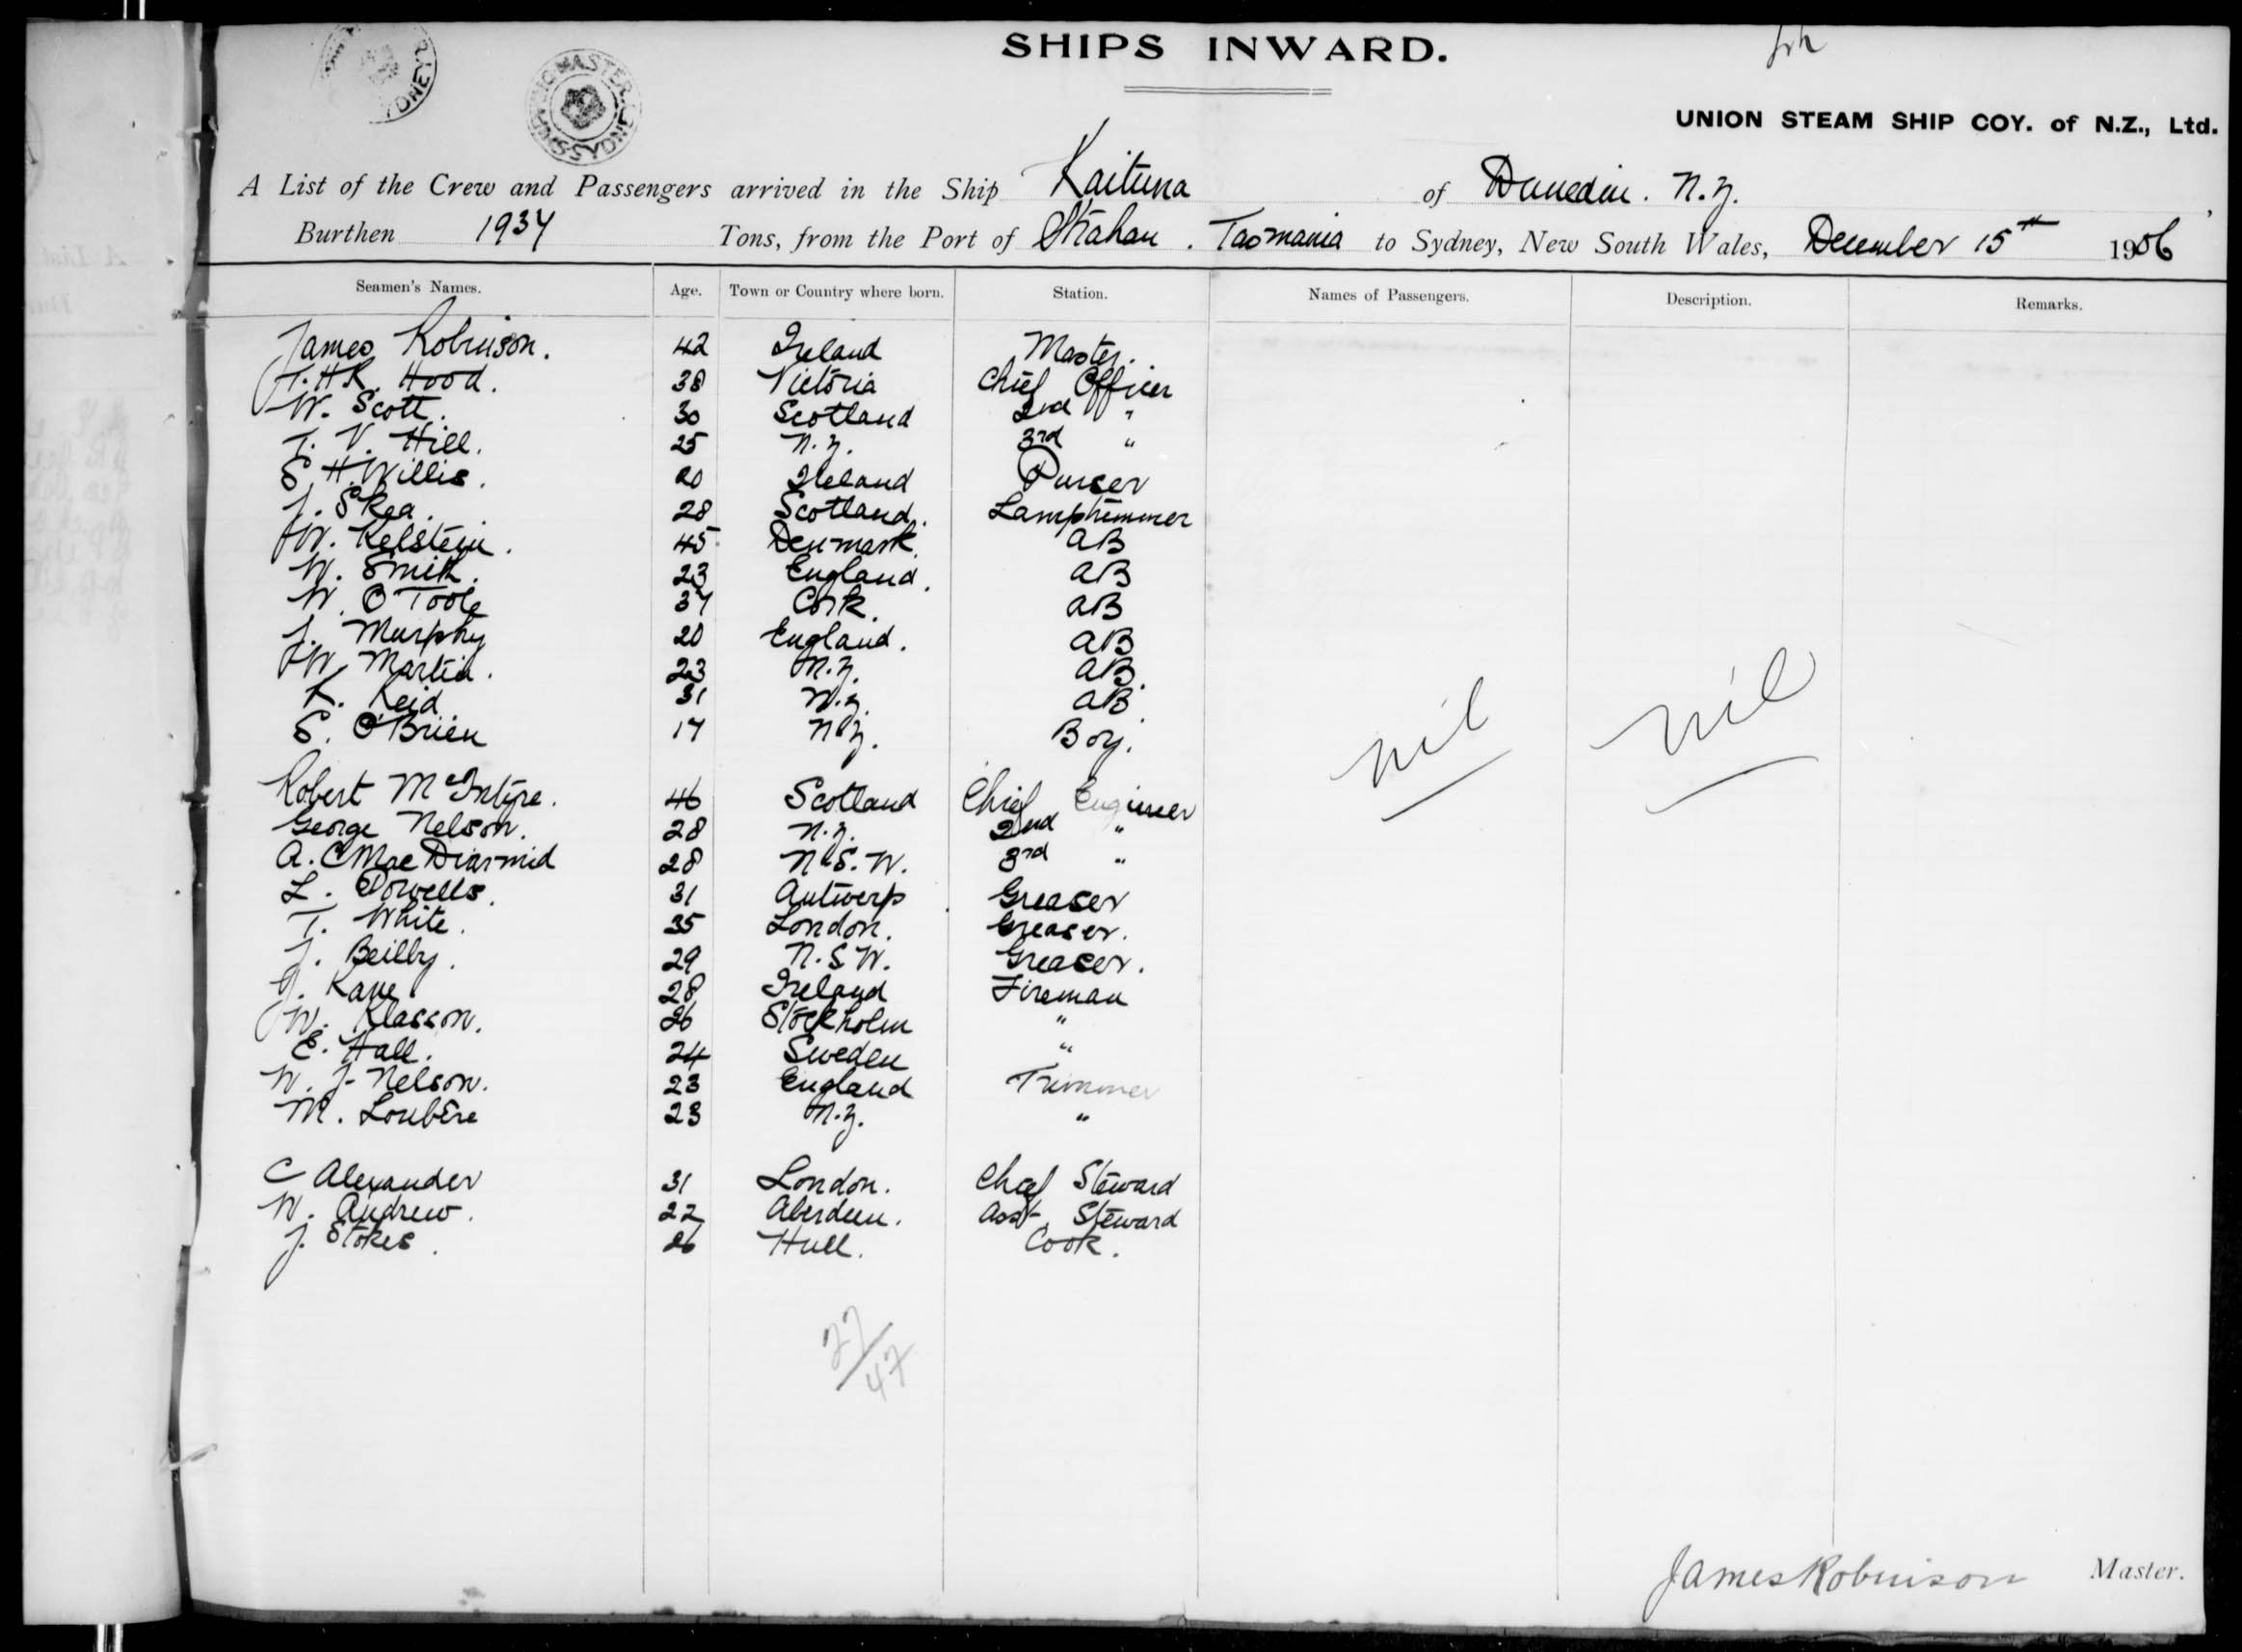 SHIPS INWARD.
UNION STEAM SHIP COY. of N.Z., Ltd.
A List of the Crew and Passengers arrived in the Ship Kaituna of Dunedin. N.Z.
Burthen 1934 Tons, from the Port of Strahan. Tasmania to Sydney, New South Wales, December 15th 1906
Seamen's Names. Age. Town or Country where born. Station. Names of Passengers. Description. Remarks.
James Robinson. 42 Ireland Master.
Hood. 38 Victoria Chief Officer
W. Scott. 30 Scotland 2nd "
T. V. Hill. 25 N.Z. 3rd "
S. H. Willis. 20 Ireland Purser
J. Skea. 28 Scotland. Lamptrimmer
W. Kelstein. 45 Denmark. AB
W. Smith. 23 England. AB
W. O'Toole 37 Cork. AB
J. Murphy 20 England. AB
W. Martin. 23 N.Z. AB.
R. Reid 31 N.Z. AB
S. O'Brien 17 N.Z. Boy.
nil nil
Robert McIntyre. 46 Scotland Chief Engineer
George Nelson. 28 N.Z. 2nd "
A. C MacDiarmid 28 N.S.W. 3rd "
L. Powells. 31 Antwerp Greaser
T. White. 35 London. Greaser.
J. Beilby. 29 N.S.W. Greaser.
J. Kane 28 Ireland Fireman
W. Klasson. 26 Stockholm "
E. Hall. 24 Sweden "
W. J. Nelson. 23 England Trimmer
M. Loubère 23 N.Z. "
C Alexander 31 London. Chief Steward
W. Andrew. 22 Aberdeen. Asst. Steward
J. Stokes. 26 Hull. Cook.
27/47
James Robinson Master.